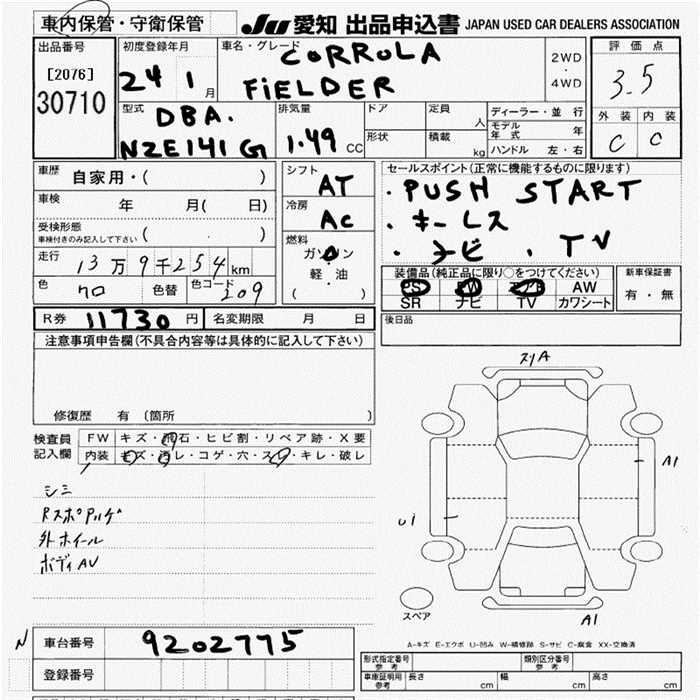 車内保管・守衛保管
JU 愛知 出品申込書 JAPAN USED CAR DEALERS ASSOCIATION
出品番号
[2076]
30710
初度登録年月
24 1 月
車名・グレード
CORROLA
FiELDER
2WD
・
4WD
評価点
3.5
外装 内装
C C
型式
DBA.
NZE141 G
排気量
1.49 CC
ドア
形状
定員 人
積載 kg
ディーラー・並行
モデル年式 年
ハンドル 左・右
車歴 自家用・( )
車検 年 月( 日)
受検形態
車検付きのみ記入して下さい ( )
走行 13万9千254 km
色 クロ 色替 色コード 209
シフト
AT
冷房
AC
燃料
ガソリン
軽・油
( )
セールスポイント(正常に機能するものに限ります)
・PUSH START
・キーレス
・ナビ ・TV
装備品(純正品に限り○をつけてください)
PS PW エアB AW
SR ナビ TV カワシート
新車保証書
有・無
R券 11730 円 名変期限 月 日
後日品
注意事項申告欄(不具合内容等は具体的に記入して下さい)
修復歴 有 (箇所 )
検査員
記入欄
FW キズ・飛石・ヒビ割・リペア跡・X要
内装 キズ・汚レ・コゲ・穴・スレ・キレ・破レ
シミ
外ホイール
ボディAV
A1
U1
A1
スペア
A-キズ E-エクボ U-凹み W-補修跡 S-サビ C-腐食 XX-交換済
N 車台番号 9202775
登録番号
形式指定番号
参考
類別区分番号
参考
車庫証明用
参考
長さ cm 幅 cm 高さ cm